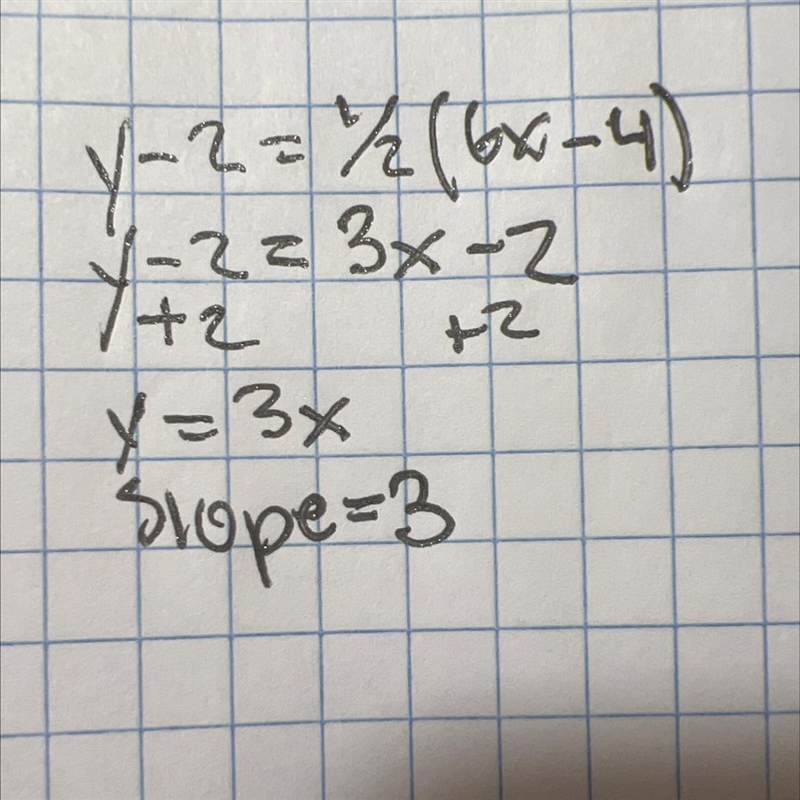 y-2 = 1/2 (6x-4)
y-2 = 3x-2
+2 +2
y = 3x
slope=3